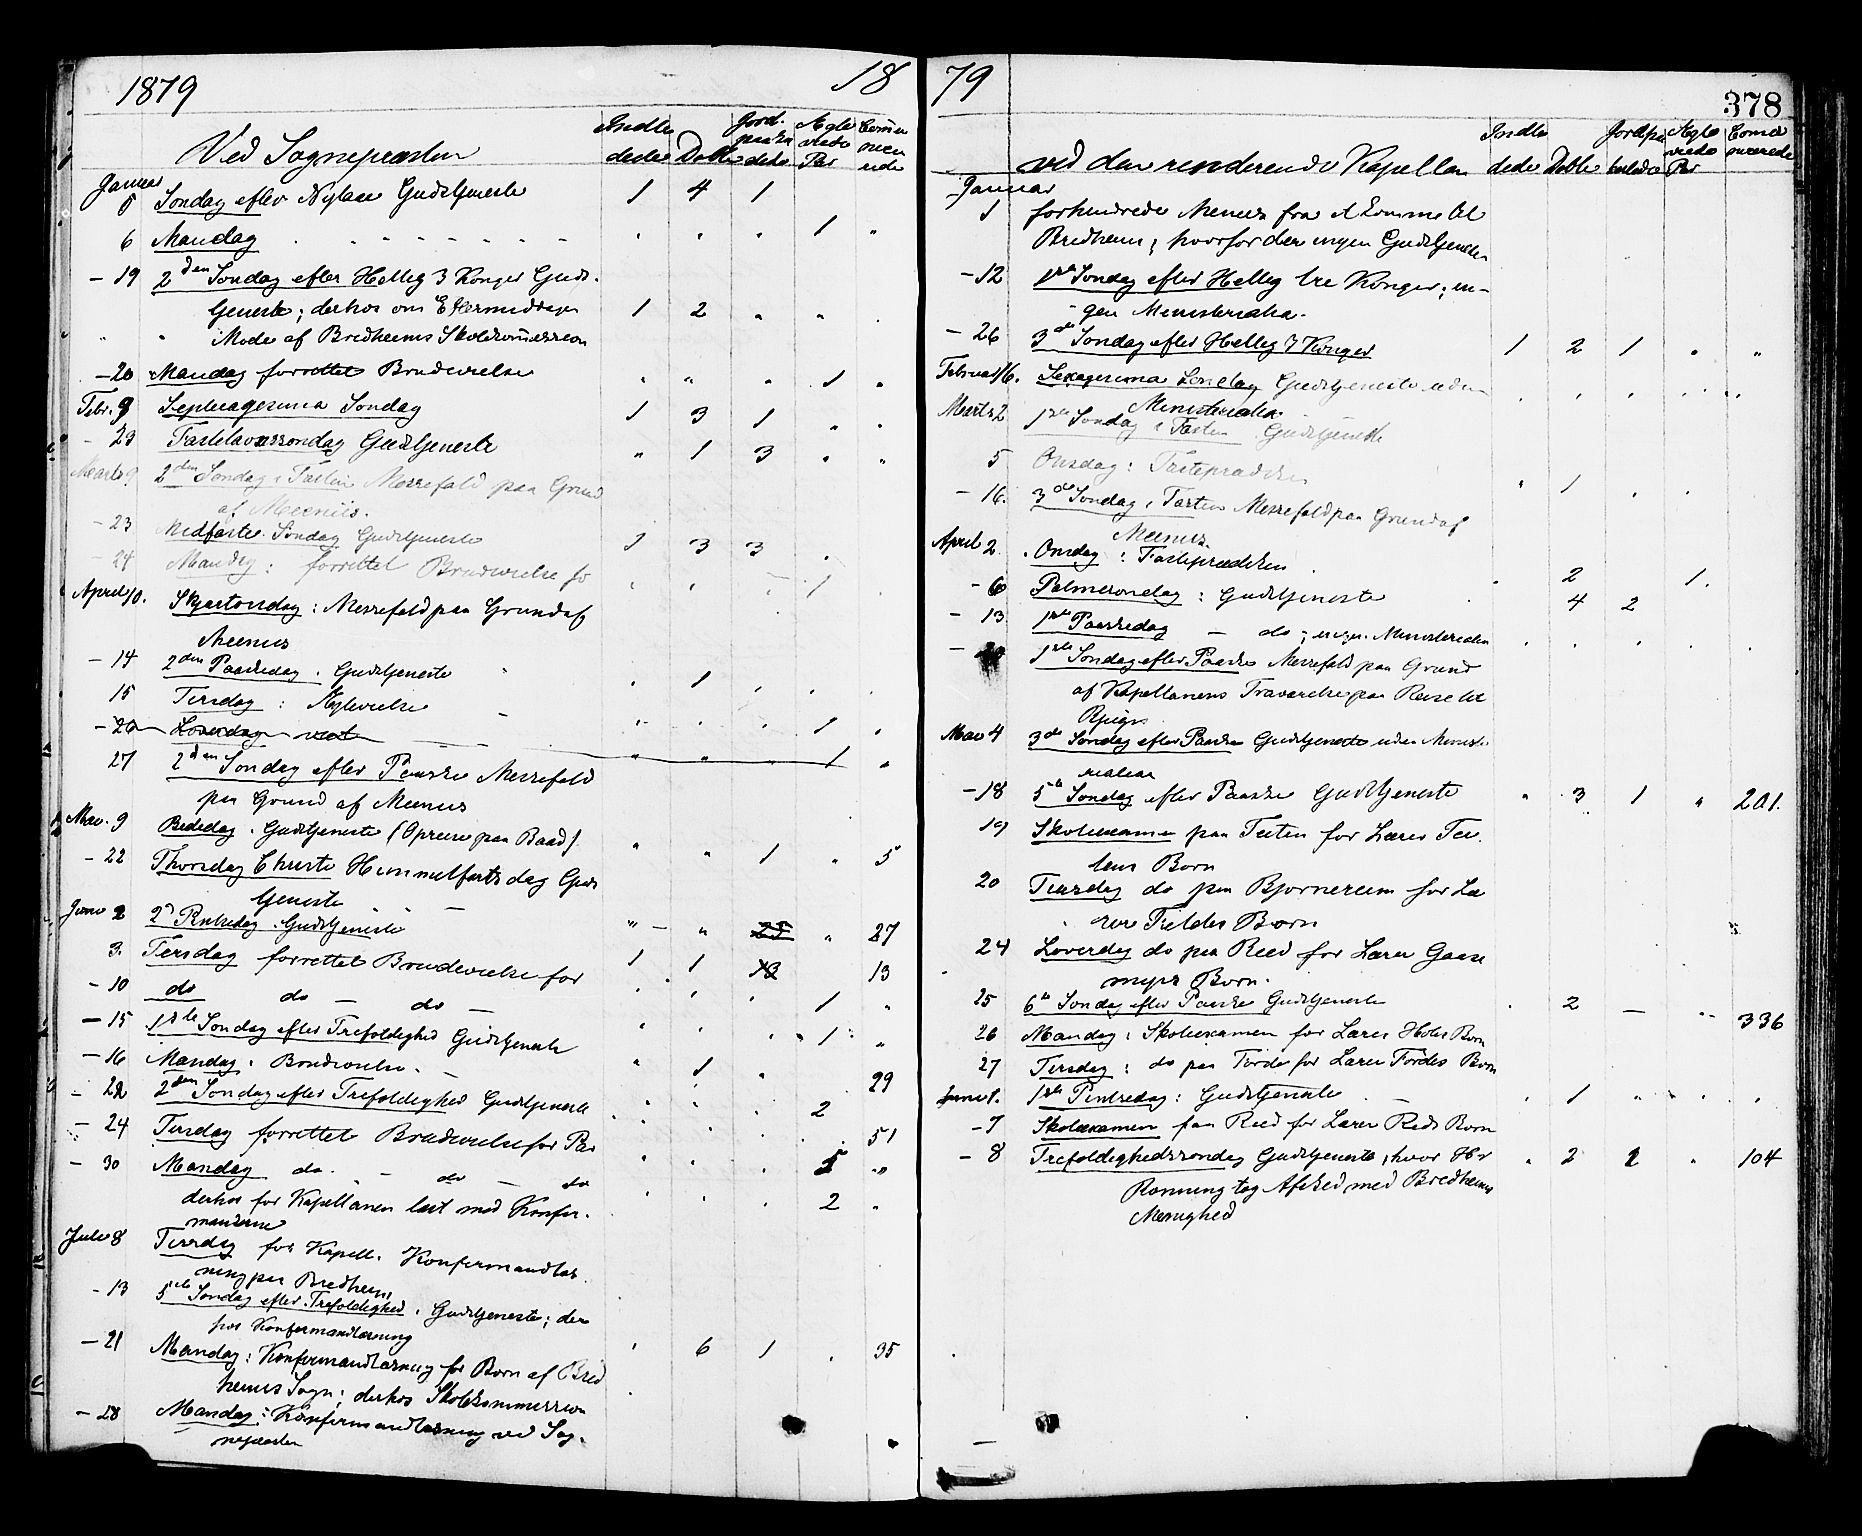 1879
18
Ved Sognepræsten
Indle
dede
Døbte
Jord.
paaka
stede
Ægte
viede
Par
Comu
nice
rede
Januar
5 Søndag efter Nytaar Gudstjeneste 1 4 1
6 Mandag . . . 1 "
- 19 2den Søndag efter Hellig 3 Konger Guds-
tjeneste; derhos om Eftermiddagen 1 2 " "
Møde af Bredheims Skolekommission
- 20 Mandag forrettet Brudevielse " " " 1 "
Febr. 9 Septuagesima Søndag 1 3 1 " "
- 23 Fastelavnssøndag Gudstjeneste " 1 3 " "
Marts 9 2den Søndag i Fasten Messefald paa Grund
af Meenis.
- 23 Midfaste Søndag Gudstjeneste 1 3 3
- 24 Mandag: forrettet Brudevielse fo 1
April 10. Skjærtorsdag: Messefald paa Grund af
Meenis
- 14 2den Paaskedag. Gudstjeneste 1
15 Tirsdag: Ægtevielse 1
- 26 Løverdag 1
27 2den Søndag efter Paaske Messefald
paa Grund af Meenis
Mai. 9 Bededag. Gudstjeneste (Opreise paa Baad) " " 1 " 5
- 22 Thorsdag Christi Himmelfartsdag Guds
tjeneste
Juni 2 2d Pintsedag. Gudstjeneste " " 25 " 27
3. Tirsdag forrettet Brudevielse for 1 1 13 13
- 10 do do — do — 1 "
- 15 1ste Søndag efter Trefoldighed Gudstjeneste 1 "
- 16 Mandag: Brudevielse. 1 29
- 22 2den Søndag efter Trefoldighed Gudstjeneste 2
- 24 Tirsdag forrettet Brudevielse for Par 51
- 30 Mandag do. — do — do "
derhos for Kapellanen læst med Konfir- 2 "
manderne
Juli 8 Tirsdag for Kapell. Konfirmandlæs
ning paa Bredheim
- 13 5te Søndag efter Trefoldighed. Gudstjeneste; der
hos Konfirmandlæsning
- 21 Mandag: Konfirmandlæsning for Børn af Bred 6 1 35
heims Sogn; derhos Skolekommission
- 28 Mandag: Konfirmandlæsning ved Sog-
nepræsten
79
378
ved den residerende Kapellan
Indle
dede
Døbte
Jordpaa
kastede
Ægte
viede
Par
Comu
nicerede
Januar
1 forhindrede Meenis fra at komme til
Bredheim; hvorfor der ingen Gudstjeneste
- 12 1ste Søndag efter Hellig tre Konger; in-
gen Ministerialia.
- 26 3die Søndag efter Hellig 3 Konger 1 2 1 " "
Februar 16. Sexagesima Søndag Gudstjeneste uden
Ministerialia
Marts 2 1ste Søndag i Fasten. Gudstjeneste
5 Onsdag: Fasteprædiken
1
- 16. 3die Søndag i Fasten Messefald paa Grund af
Meenis.
April 2. Onsdag: Fasteprædiken 2 1.
- 6 Palmesøndag: Gudstjeneste 4 2
- 13 1ste Paaskedag — do; ingen Ministerialia
- 20 1ste Søndag efter Paaske Messefald paa Grund
af Kapellanens Fraværelse paa Reise til
Mai 4 3die Søndag efter Paaske Gudstjeneste uden Ministe
rialia
- 18 5te Søndag efter Paaske Gudstjeneste " 3 1 " 201.
19 Skoleexamen paa Testen for Lærer Tes
tens Børn
20 Tirsdag do paa Bjørnereim for Læ
rer Fieldes Børn
24 Løverdag do paa Reed for Lærer Gaase
myrs Børn.
25 6te Søndag efter Paaske Gudstjeneste 2 — 336
26 Mandag: Skoleexamen for Lærer Holes Børn
27 Tirsdag: do paa Førde for Lærer Førdes Børn
Juni 1. 1ste Pintsedag: Gudstjeneste 1
- 7 Skoleexamen paa Reed for Lærer Reeds Børn
- 8 Trefoldighedssøndag Gudstjeneste, hvor Hr " 2 2 " 104
Rønning tog Afsked med Bredheims
Menighed